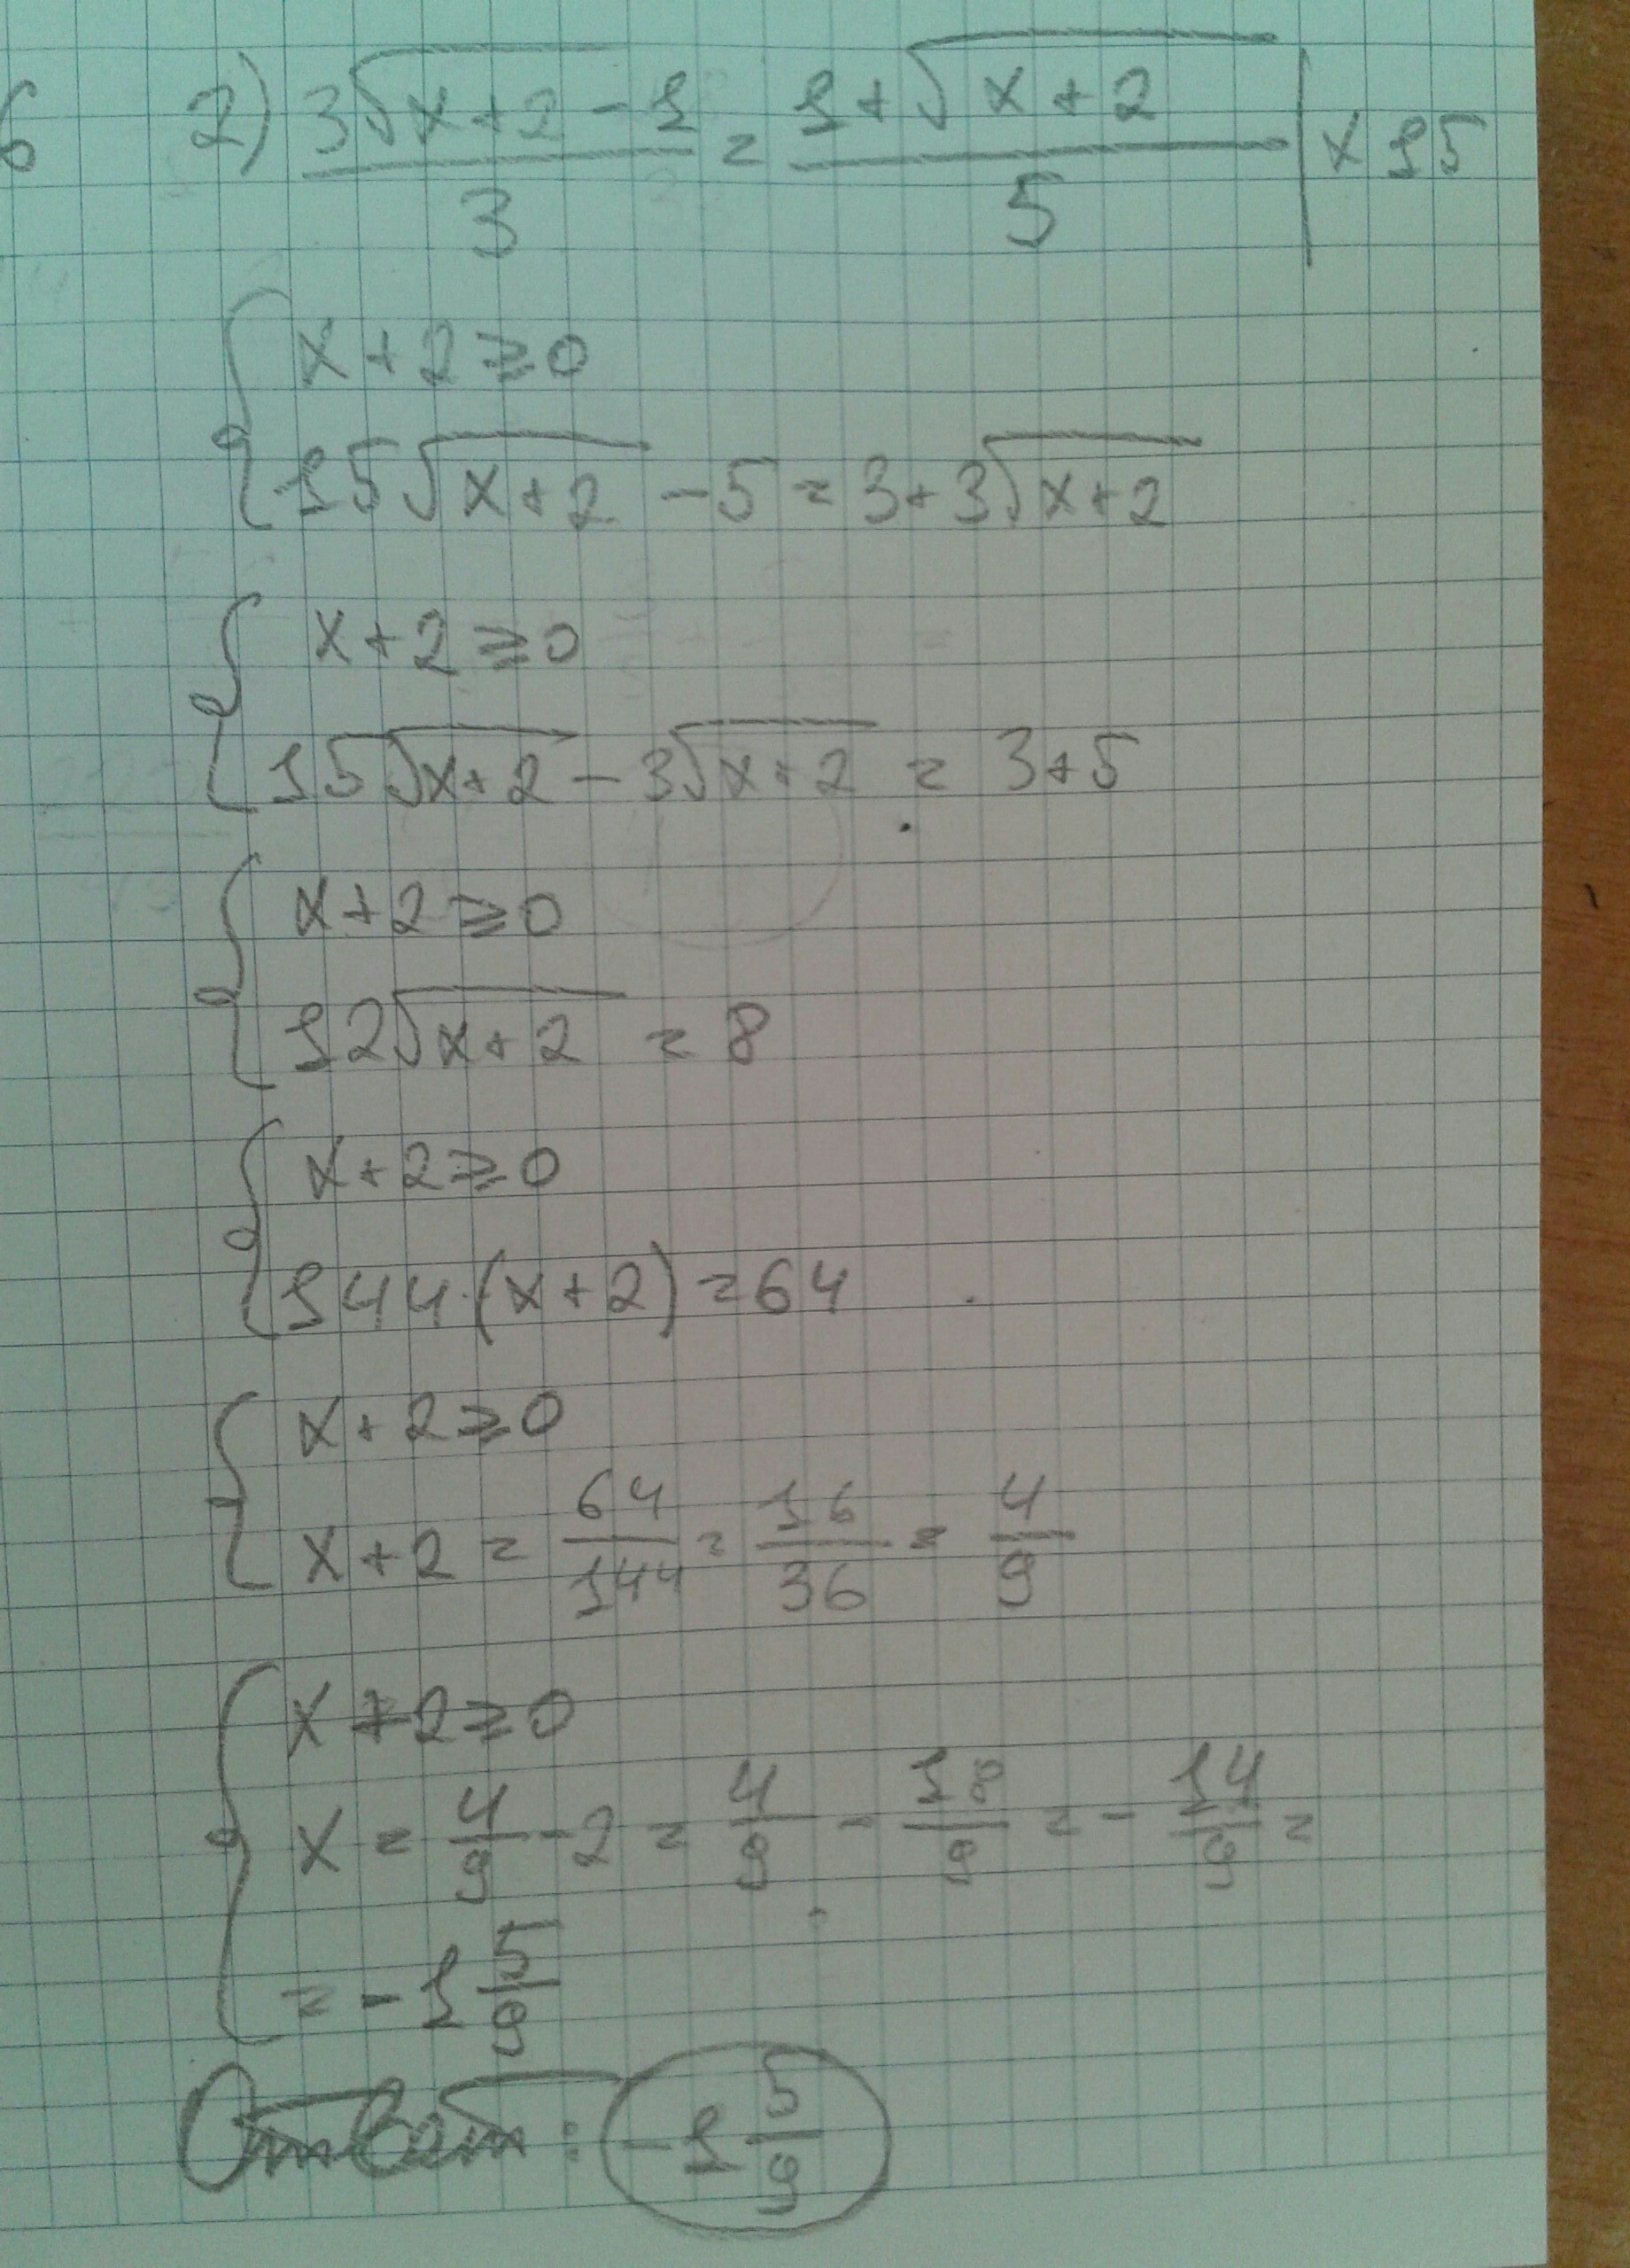 6 2) (3√(x+2) - 1)/3 = (1+√(x+2))/5 | × 15
{ x+2 ≥ 0
15√(x+2) - 5 = 3 + 3√(x+2)
{ x+2 ≥ 0
15√(x+2) - 3√(x+2) = 3+5
{ x+2 ≥ 0
12√(x+2) = 8
{ x+2 ≥ 0
144·(x+2) = 64
{ x+2 ≥ 0
x+2 = 64/144 = 16/36 = 4/9
{ x+2 ≥ 0
x = 4/9 - 2 = 4/9 - 18/9 = - 14/9 =
= - 1 5/9
Ответ: - 1 5/9